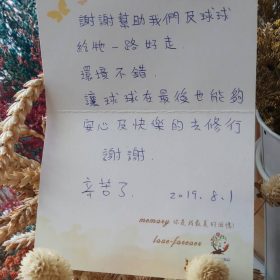 謝謝幫助我們及球球
給牠一路好走.
環境不錯.
讓球球在最後也能夠
安心及快樂的去修行
謝謝.
辛苦了. 2019.8.1
memory 你是我最美好的回憶!
love-forever